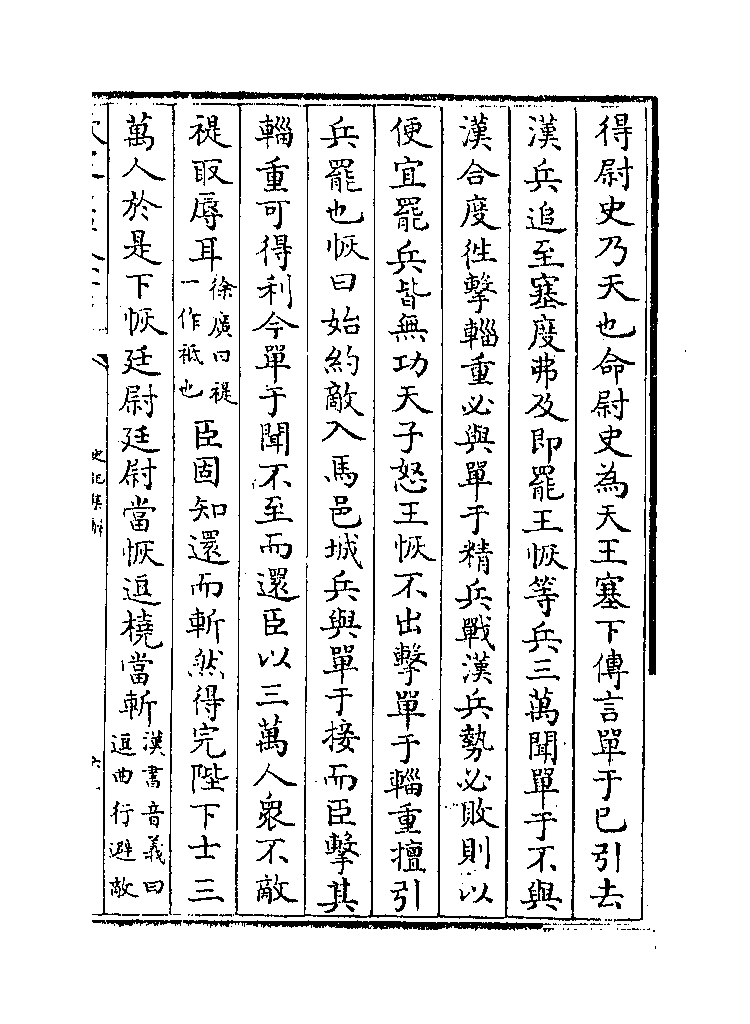 得尉史乃天也命尉史為天王塞下傳言單于已引去
漢兵追至塞度弗及即罷王恢等兵三萬聞單于不與
漢合度徃擊輜重必與單于精兵戰漢兵勢必敗則以
便宜罷兵皆無功天子怒王恢不出擊單于輜重擅引
兵罷也恢曰始約敵入馬邑城兵與單于接而臣擊其
輜重可得利今單于聞不至而還臣以三萬人衆不敵
禔取辱耳徐廣曰禔一作祗也臣固知還而斬然得完陛下士三
萬人於是下恢廷尉廷尉當恢逗橈當斬漢書音義曰逗曲行避敵
史記集解